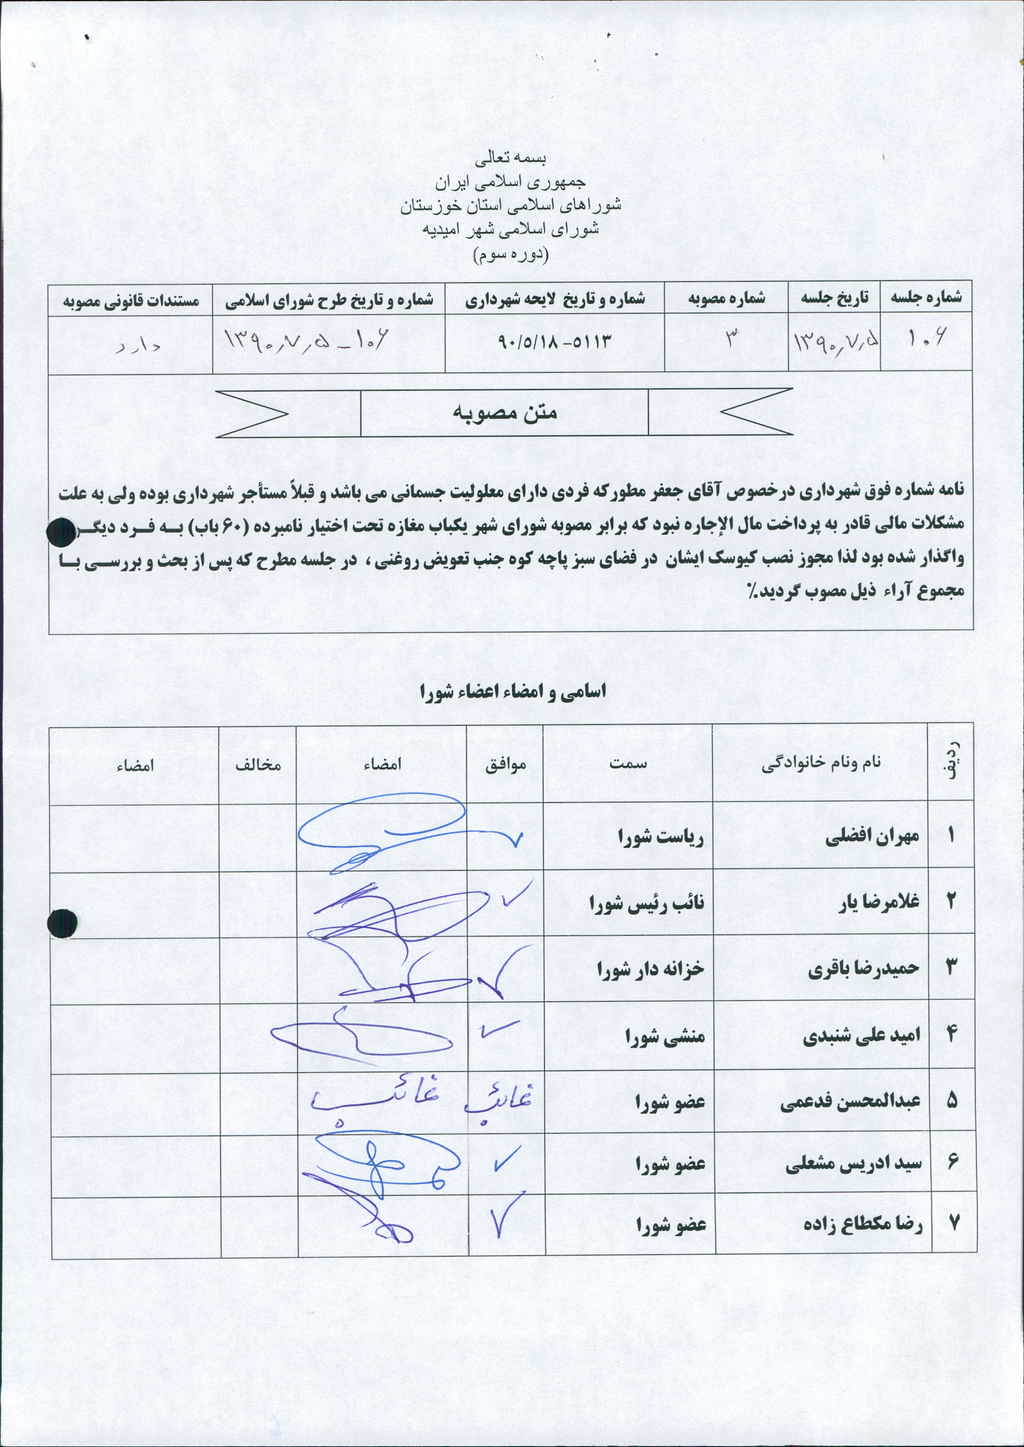 بسمه تعالی
جمهوری اسلامی ایران
شوراهای اسلامی استان خوزستان
شورای اسلامی شهر امیدیه
(دوره سوم)
شماره جلسه تاریخ جلسه شماره مصوبه شماره و تاریخ لایحه شهرداری شماره و تاریخ طرح شورای اسلامی مستندات قانونی مصوبه
۱۰۶ ۱۳۹۰٫۷٫۵ ۳ ۵۱۱۳-۹۰/۵/۱۸ ۱۰۶ـ ۱۳۹۰٫۷٫۵ دارد
متن مصوبه
نامه شماره فوق شهرداری درخصوص آقای جعفر مطورکه فردی دارای معلولیت جسمانی می باشد و قبلاً مستأجر شهرداری بوده ولی به علت
مشکلات مالی قادر به پرداخت مال الإجاره نبود که برابر مصوبه شورای شهر یکباب مغازه تحت اختیار نامبرده (۶۰ باب) به فرد دیگر
واگذار شده بود لذا مجوز نصب کیوسک ایشان در فضای سبز پاچه کوه جنب تعویض روغنی ، در جلسه مطرح که پس از بحث و بررسی با
مجموع آراء ذیل مصوب گردید.٪
اسامی و امضاء اعضاء شورا
ردیف نام ونام خانوادگی سمت موافق امضاء مخالف امضاء
۱ مهران افضلی ریاست شورا
۲ غلامرضا یار نائب رئیس شورا
۳ حمیدرضا باقری خزانه دار شورا
۴ امید علی شنبدی منشی شورا
۵ عبدالمحسن فدعمی عضو شورا غائب غائب
۶ سید ادریس مشعلی عضو شورا
۷ رضا مکطاع زاده عضو شورا